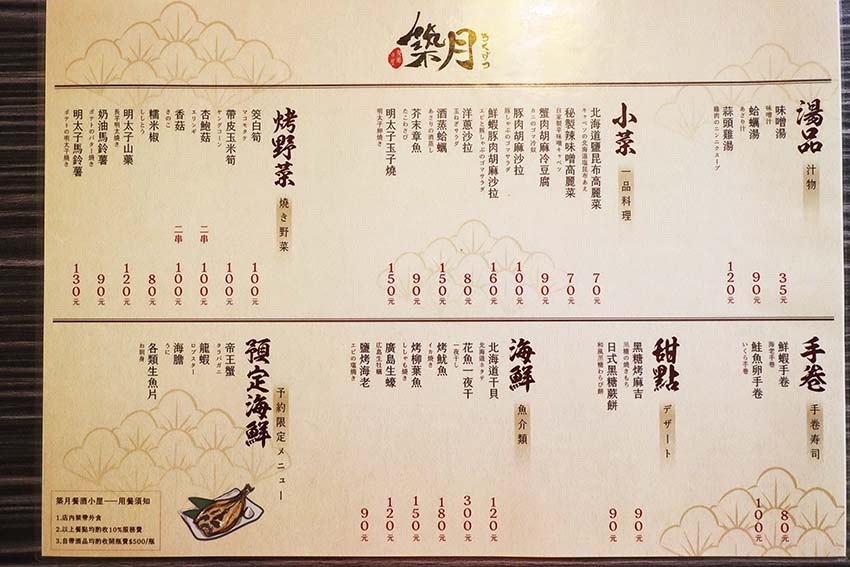 築月
ちくげつ
湯品
汁物
味噌湯
味噌汁
35元
蛤蠣湯
あさり汁
90元
蒜頭雞湯
鶏肉のニンニクスープ
120元
小菜
一品料理
北海道鹽昆布高麗菜
キャベツの北海道塩昆布あえ
70元
秘製辣味噌高麗菜
自家製辛味噌キャベツ
70元
蟹肉胡麻冷豆腐
カニのゴマ冷奴
90元
豚肉胡麻沙拉
豚しゃぶのゴマサラダ
100元
鮮蝦豚肉胡麻沙拉
エビと豚しゃぶのゴマサラダ
160元
洋蔥沙拉
玉ねぎサラダ
80元
酒蒸蛤蠣
あさりの酒蒸し
150元
芥末章魚
たこわさび
90元
明太子玉子燒
明太子卵焼き
150元
烤野菜
燒き野菜
筊白筍
マコモタケ
100元
帶皮玉米筍
ヤングコーン
100元
杏鮑菇
エリンギ
二串
100元
香菇
きのこ
二串
100元
糯米椒
ししとう
80元
明太子山藥
長芋明太焼き
120元
奶油馬鈴薯
ポテトのバター焼き
90元
明太子馬鈴薯
ポテトの明太子焼き
130元
手卷
手卷寿司
鮮蝦手卷
海老手卷
80元
鮭魚卵手卷
いくら手卷
100元
甜點
デザート
黑糖烤麻吉
黒糖の焼きもち
90元
日式黑糖蕨餅
和風黒糖わらび餅
90元
海鮮
魚介類
北海道干貝
北海道ホタテ
120元
花魚一夜干
一夜干し
300元
烤魷魚
イカ焼き
180元
烤柳葉魚
ししゃも焼き
150元
廣島生蠔
広島生牡蠣
120元
鹽烤海老
エビの塩焼き
90元
預定海鮮
予約限定メニュー
帝王蟹
タラバガニ
龍蝦
ロブスター
海膽
うに
各類生魚片
お刺身
築月餐酒小屋——用餐須知
1.店內禁帶外食
2.以上餐點均酌收10%服務費
3.自帶酒品均酌收開瓶費$500/瓶